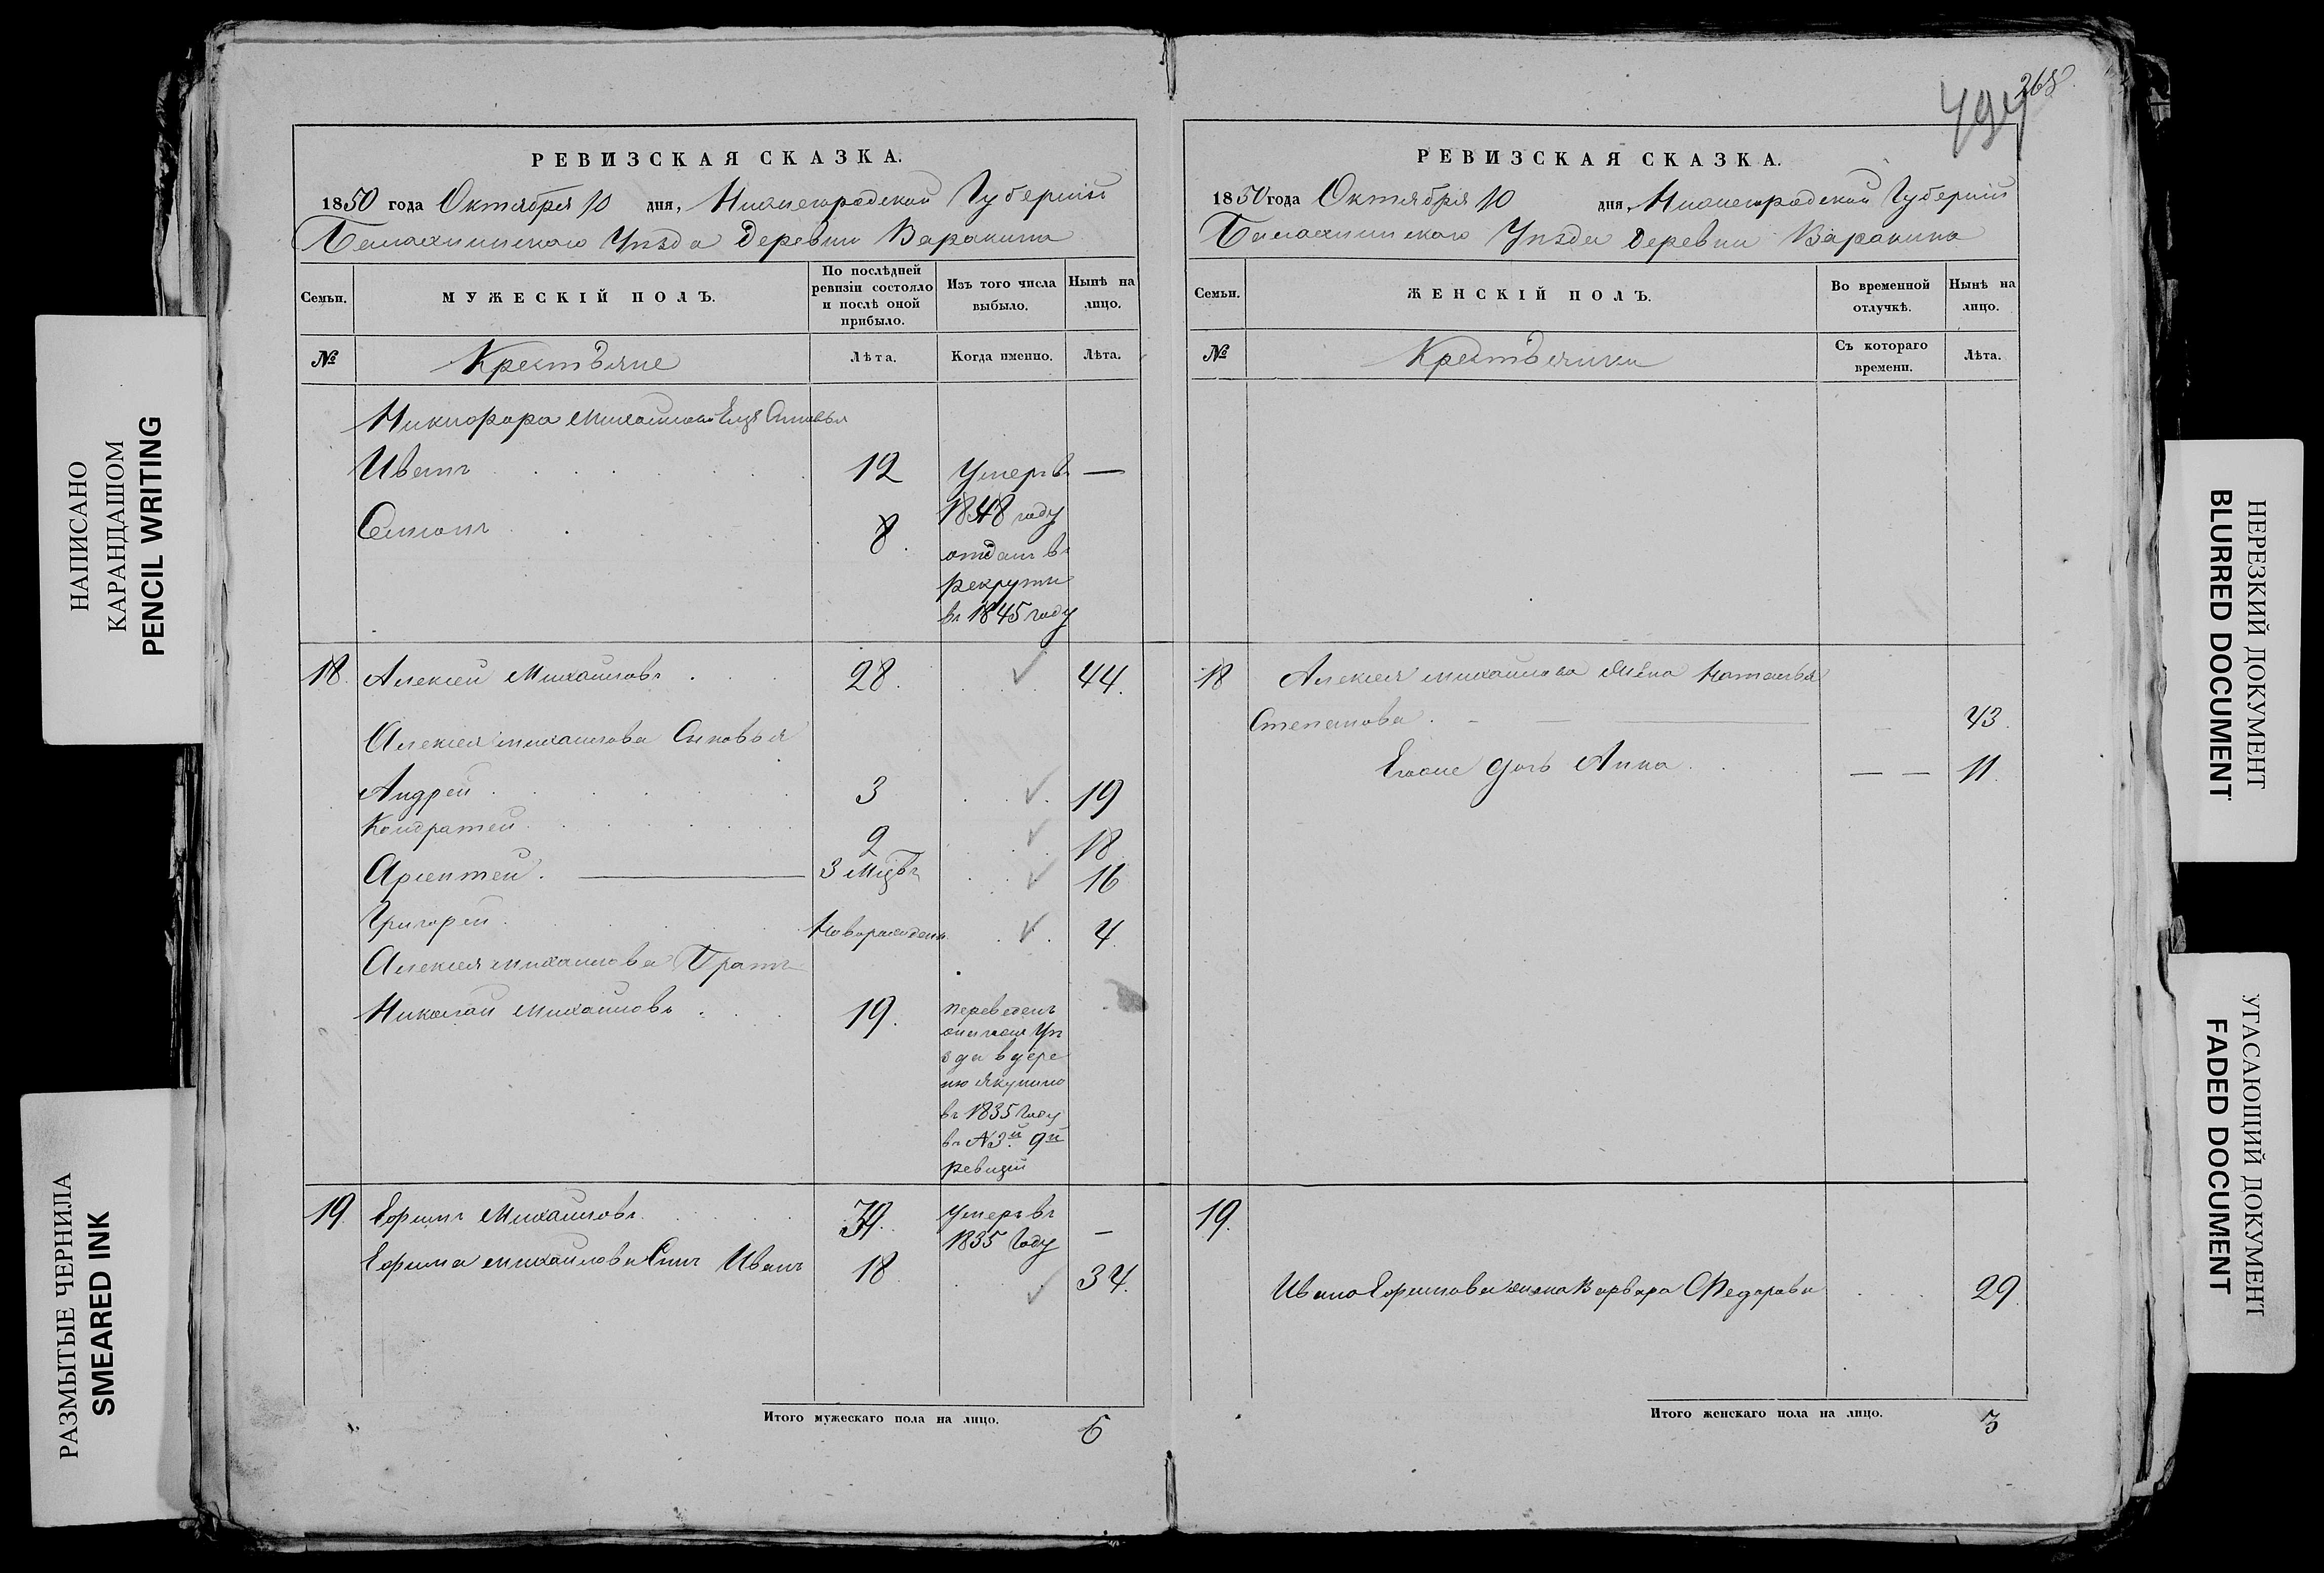 НАПИСАНО
КАРАНДАШОМ
PENCIL WRITING
РАЗМЫТЫЕ ЧЕРНИЛА
SMEARED INK
РЕВИЗСКАЯ СКАЗКА.
1850 года Октября 10 дня, Нижегородской Губерніи
Балахнинскаго Уѣзда Деревни Варакина
Семьи.
МУЖЕСКІЙ ПОЛЪ.
По послѣдней ревизіи состояло и послѣ оной прибыло.
Изъ того числа выбыло.
Нынѣ на лицо.
№
Крестьяне
Лѣта.
Когда именно.
Лѣта.
Никифора Михайлова Сыновья
Иванъ 12 Умеръ въ —
1848 году
Семонъ 8. отданъ въ
рекруты
въ 1845 году
18. Алексей Михайловъ 28. 44.
Алексея Михайлова Сыновья
Андрей 3 19
Кондратей 2 18
Арсентей. 3 Мцвъ 16
Григорей Новорожденъ 4
Алексея Михайлова Братъ
Николай Михайловъ 19. переведенъ
Уѣ
зда в дере
ню Якунино
въ 1835 году
въ № 3й 9й
ревизіи
19. Ефимъ Михайловъ 39. Умеръ въ —
1835 Году
Ефима Михайлова Сынъ Иванъ 18 34.
Итого мужескаго пола на лицо. 6
494
268.
РЕВИЗСКАЯ СКАЗКА.
1850 года Октября 10 дня, Нижегородской Губерніи
Балахнинскаго Уѣзда Деревни Варакина
Семьи.
ЖЕНСКІЙ ПОЛЪ.
Во временной отлучкѣ.
Нынѣ на лицо.
№
Крестьянки
Съ котораго времени.
Лѣта.
18 Алексея Михайлова Жена Наталья
Степанова. 43.
Егоже дочь Анна — — 11.
19.
Ивана Ефимова жена Варвара Федорова 29.
Итого женскаго пола на лицо. 3
НЕРЕЗКИЙ ДОКУМЕНТ
BLURRED DOCUMENT
УГАСАЮЩИЙ ДОКУМЕНТ
FADED DOCUMENT